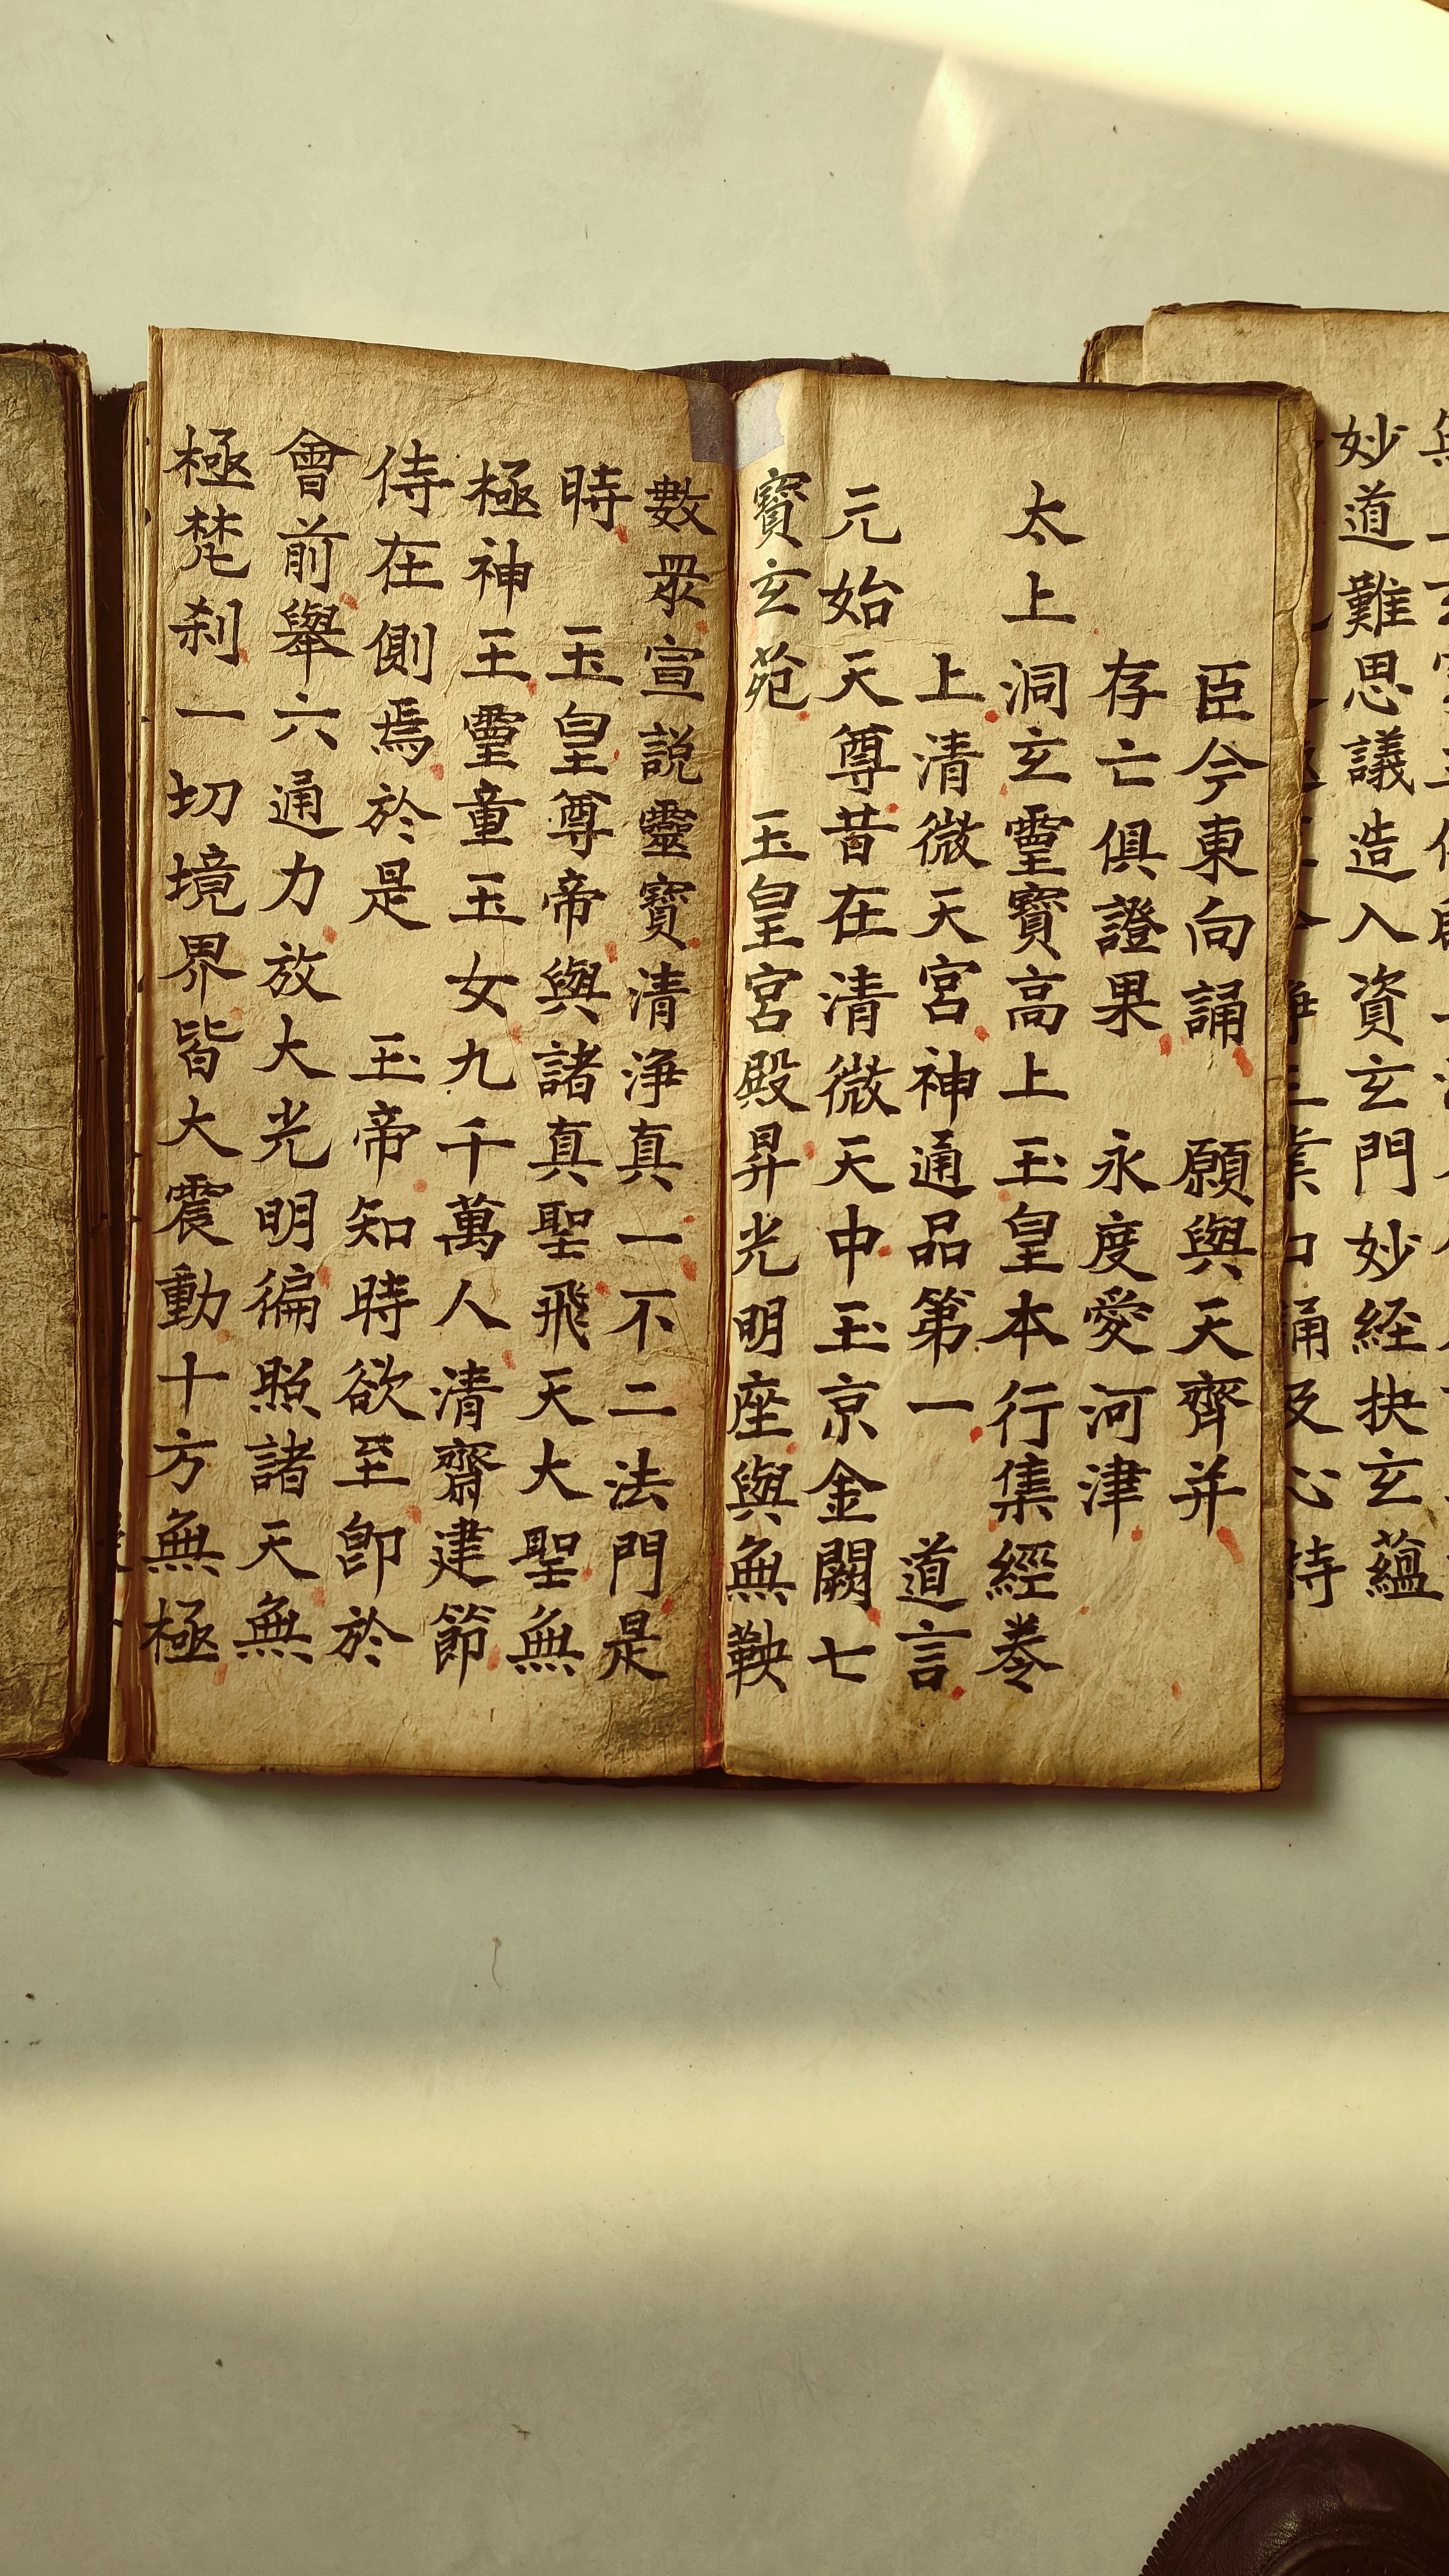 妙道難思議造入資玄門妙経抉玄蘊
臣今東向誦 願與天齊并
存亡俱證果 永度愛河津
太上洞玄靈寶高上玉皇本行集經卷
上清微天宮神通品第一 道言
元始天尊昔在清微天中玉京金闕七
寶玄苑 玉皇宮殿昇光明座與無鞅
數眾宣說靈寶清淨真一不二法門是
時 玉皇尊帝與諸真聖飛天大聖無
極神王靈童玉女九千萬人清齋建節
侍在側焉於是 玉帝知時欲至即於
會前舉六通力放大光明徧照諸天無
極梵刹一切境界皆大震動十方無極